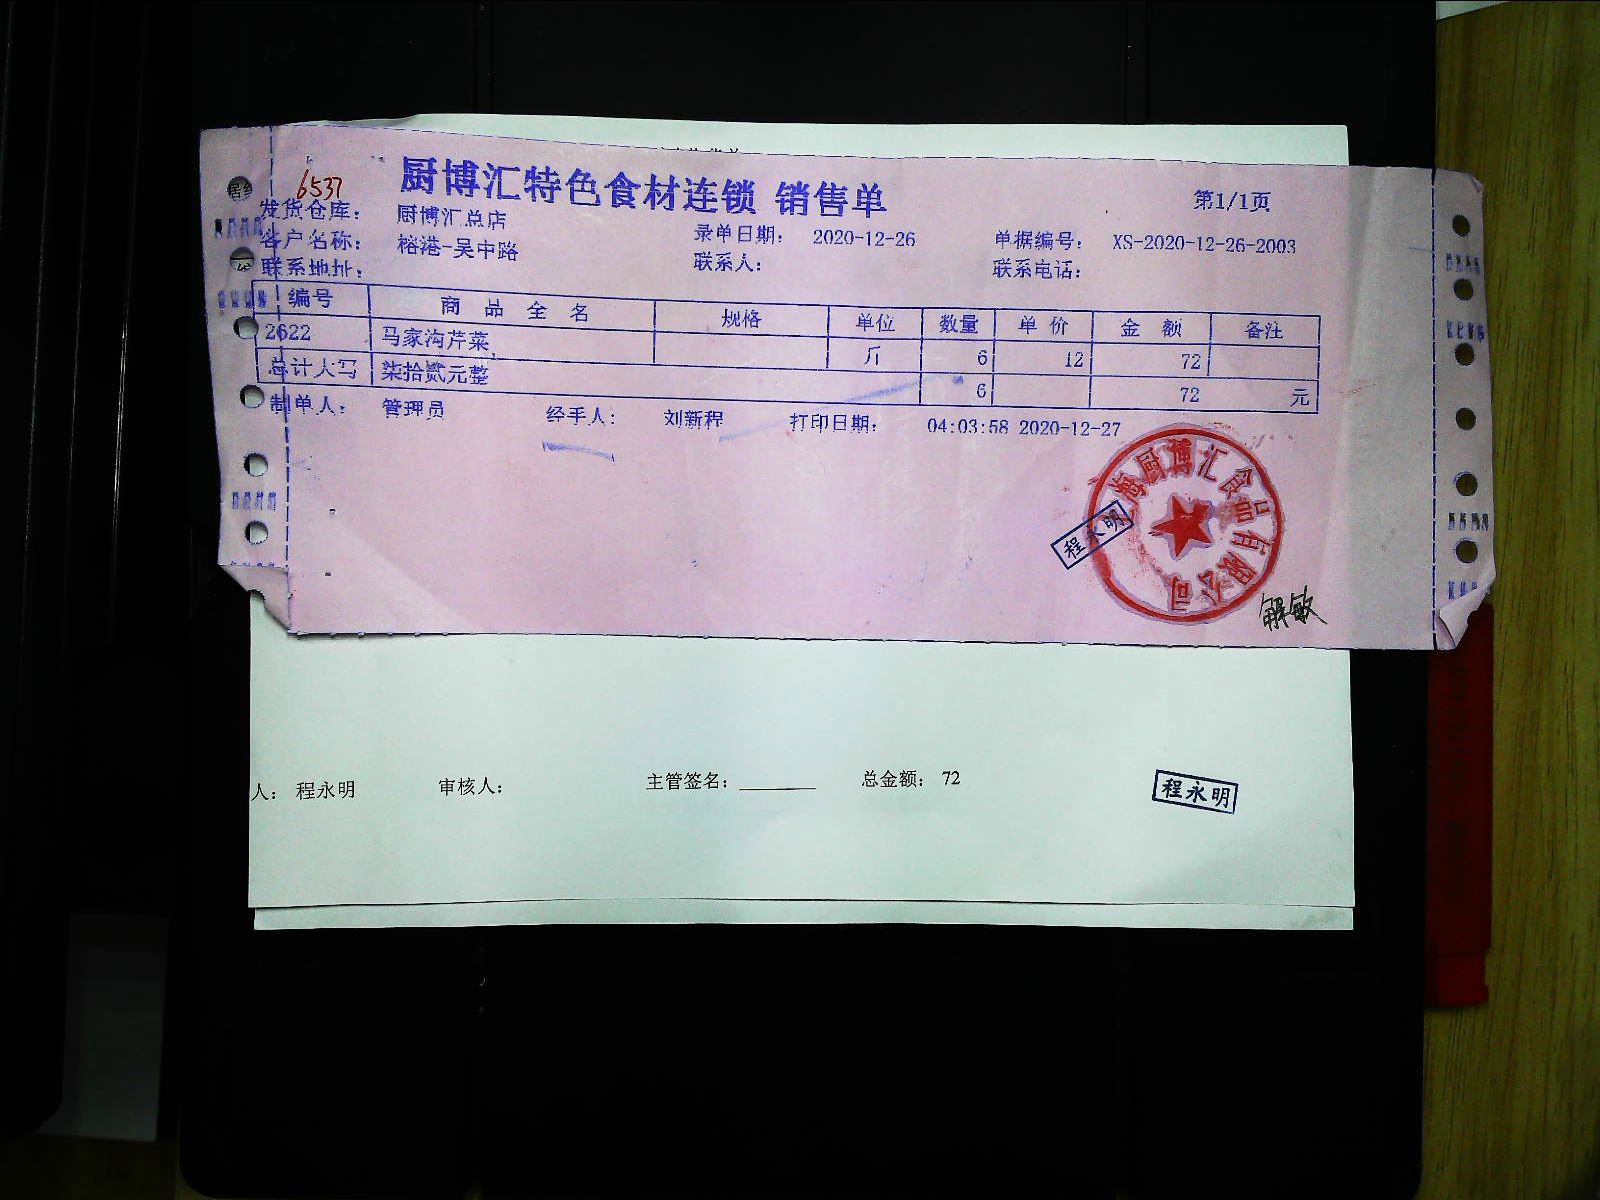 6537
厨博汇特色食材连锁 销售单
第1/1页
发货仓库： 厨博汇总店
客户名称： 榕港-吴中路 录单日期： 2020-12-26 单据编号： XS-2020-12-26-2003
联系地址： 联系人： 联系电话：
编号 商品全名 规格 单位 数量 单价 金额 备注
2622 马家沟芹菜 斤 6 12 72
总计大写 柒拾贰元整 6 72 元
制单人： 管理员 经手人： 刘新程 打印日期： 04:03:58 2020-12-27
海厨博汇食品有限公司
程永明
解敏
人： 程永明 审核人： 主管签名： 总金额： 72
程永明